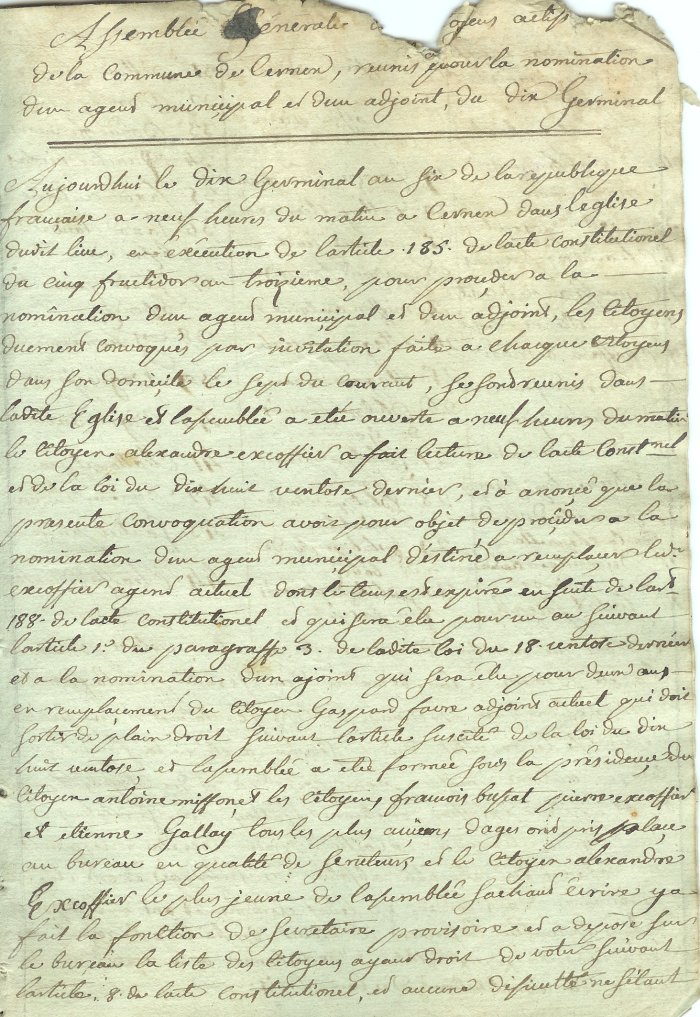 Assemblée Générale oyens actifs
de la Commune de Cernex, reunis pour la nomination
dun agend municipal et dun adjoint, du dix Germinal
Aujourdhui le dix Germinal an six de la republique
française a neuf heures du matin a Cernex dans leglise
dudit lieu, en éxécution de larticle 185. de lacte constitutionel
du cinq fructidor an troisieme, pour proçeder a la
nomination dun agend municipal et dun adjoint, les Citoyens
duement convoqués par invitation faite a chaque Citoyens
dans son domicile le sept du courant, se sond reunis dans
ladite Eglise et lassemblée a etée ouverte a neuf heures du matin
le Citoyen alexandre excoffier a fait lecture de lacte Constnel
et de la loi du dix huit ventose dernier, et à anoncé que la
presente Convoquation avoit pour objet de proçéder a la
nomination dun agend municipal déstiné a remplacer led.
excoffier agend actuel dont le tems est expiré en suite de lart
188. de lacte constitutionel et qui sera élu pour un an suivant
larticle 1.r du paragraffe 3. de ladite loi du 18. ventose dernier
et a la nomination dun ajoint qui sera élu pour deux ans
en remplacement du Citoyen Gaspard favre adjoint actuel qui doit
sortir de plain droit suivant larticle suscité de la loi du dix
huit ventose et lassemblée a etée formée sous la présidence du
Citoyen antoine missonet les Citoyens francois bussat pierre excoffier
et etienne Gallay tous les plus ançiens dages ont pris place
au bureau en qualité de scruteurs et le Citoyen alexandre
Excoffier le plus jeune de lassemblée sachand écrire y a
fait la fonction de secretaire provisoire et a deposé sur
le bureau la liste des Citoyens ayant droit de voter suivant
larticle 8. de lacte constitutionel, et aucune dificulté ne sétant